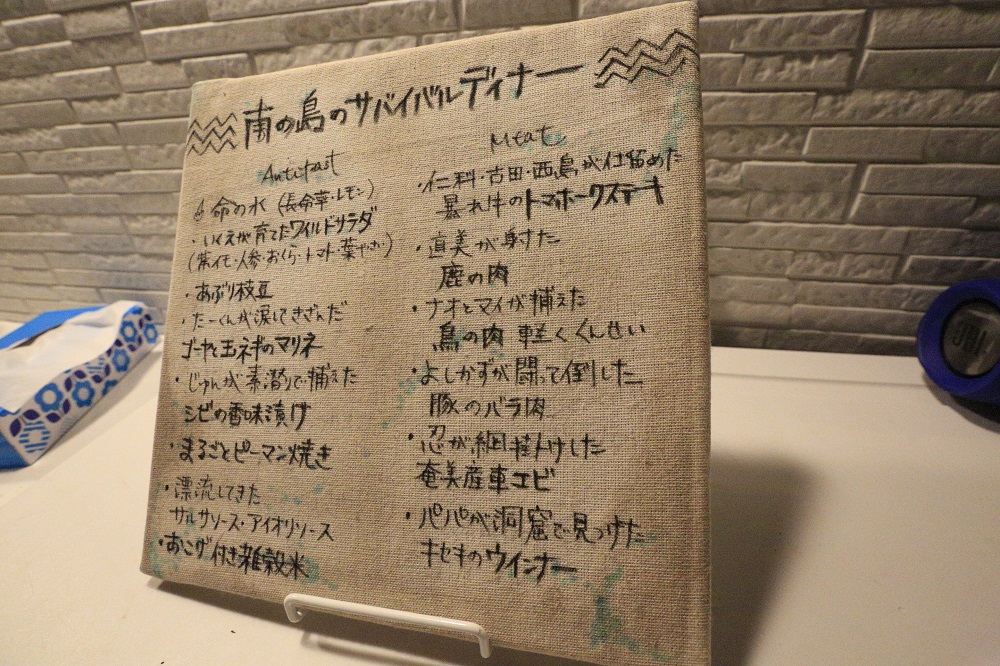 南の島のサバイバルディナー
Antipast
命の水(長命草・レモン)
・いくえが育てたワイルドサラダ
(紫イモ・人参・おくら・トマト・葉やさい)
・あぶり枝豆
・たーくんが涙してきざんだ
ゴーヤと玉ネギのマリネ
・じゅんが素潜りで捕えた
シビの香味漬け
・まるごとピーマン焼き
・漂流してきた
サルサソース・アイオリソース
・おこげ付き雑穀米
Meat
・仁科・古田・西島が仕留めた
暴れ牛のトマホークステーキ
・直美が射た
鹿の肉
・ナオとマイが捕えた
鳥の肉 軽くくんせい
・よしかずが闘って倒した
豚のバラ肉
・忍が網掛けした
奄美産車エビ
・パパが洞窟で見つけた
キセキのウインナー
JBL